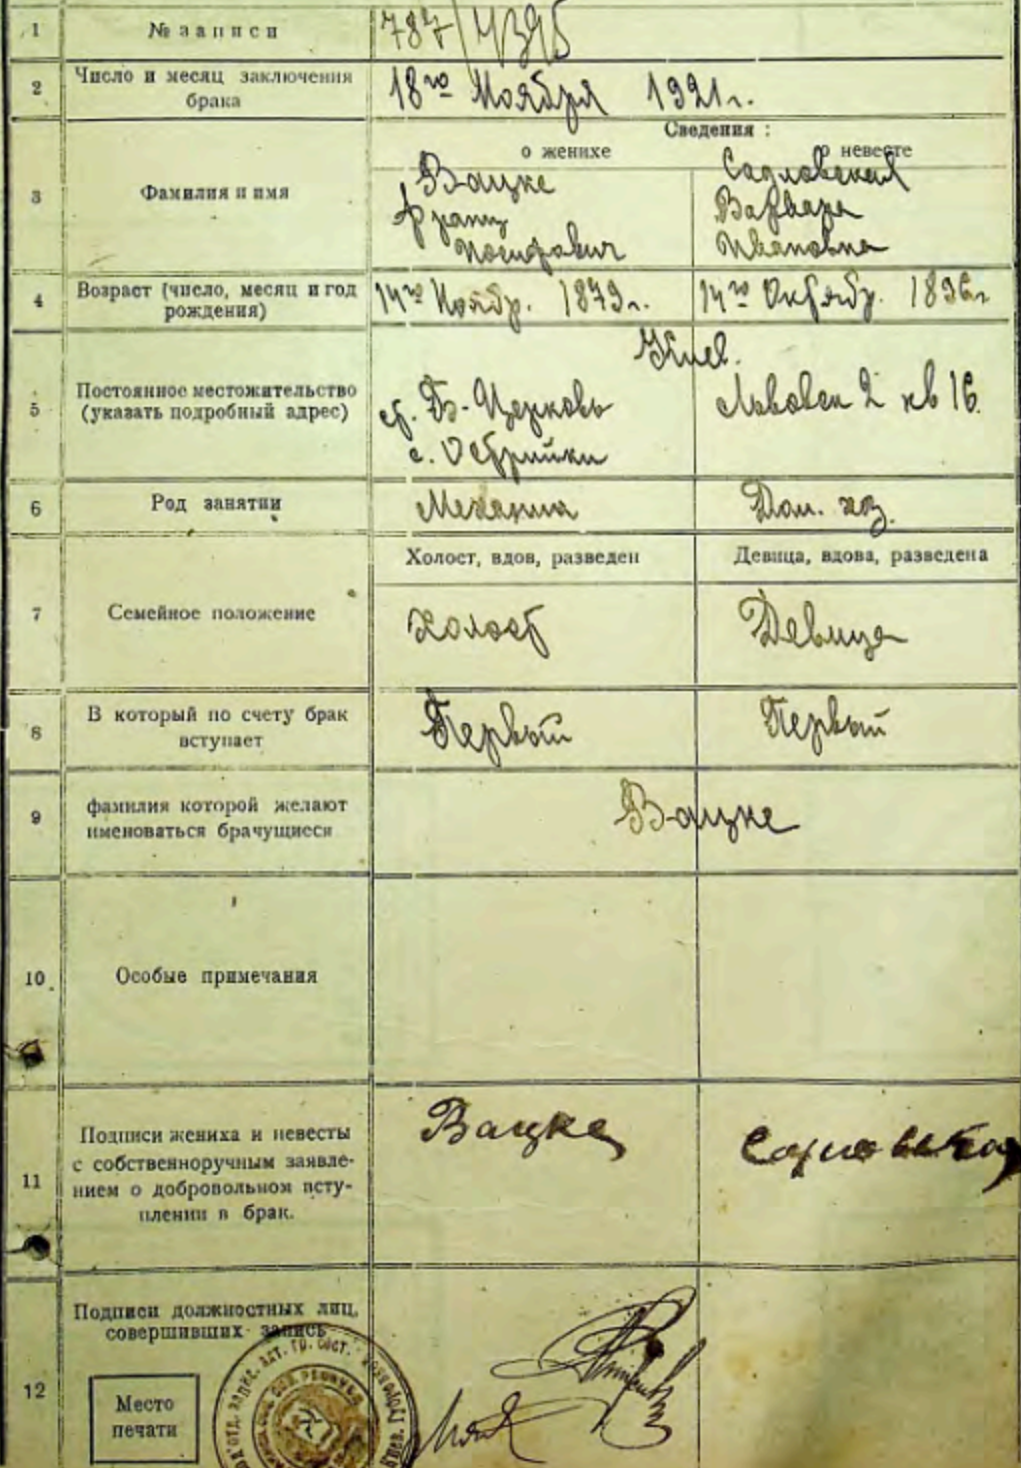 1 № записи 787/4395
2 Число и месяц заключения
брака
18го Ноября 1921г.
Сведения :
о женихе о невесте
3 Фамилия и имя
Вацке Садловская
Франц Варвара
Иосифович Ивановна
4 Возраст (число, месяц и год
рождения)
14го Ноябр. 1879г. 14го Октябр. 1896г
Киев.
5 Постоянное местожительство
(указать подробный адрес)
ст. Б-Церковь Львовск 2 кв 16.
с. Острийки
6 Род занятии Механик Дом. хоз.
Холост, вдов, разведен Девица, вдова, разведена
7 Семейное положение Холост Девица
8 В который по счету брак
вступает
Первый Первый
9 фамилия которой желают
именоваться брачущиеся
Вацке
10 Особые примечания
11 Подписи жениха и невесты
с собственноручным заявле-
нием о добровольном всту-
плении в брак.
Вацке Садловская
12 Подписи должностных лиц,
совершивших запись
Место
печати